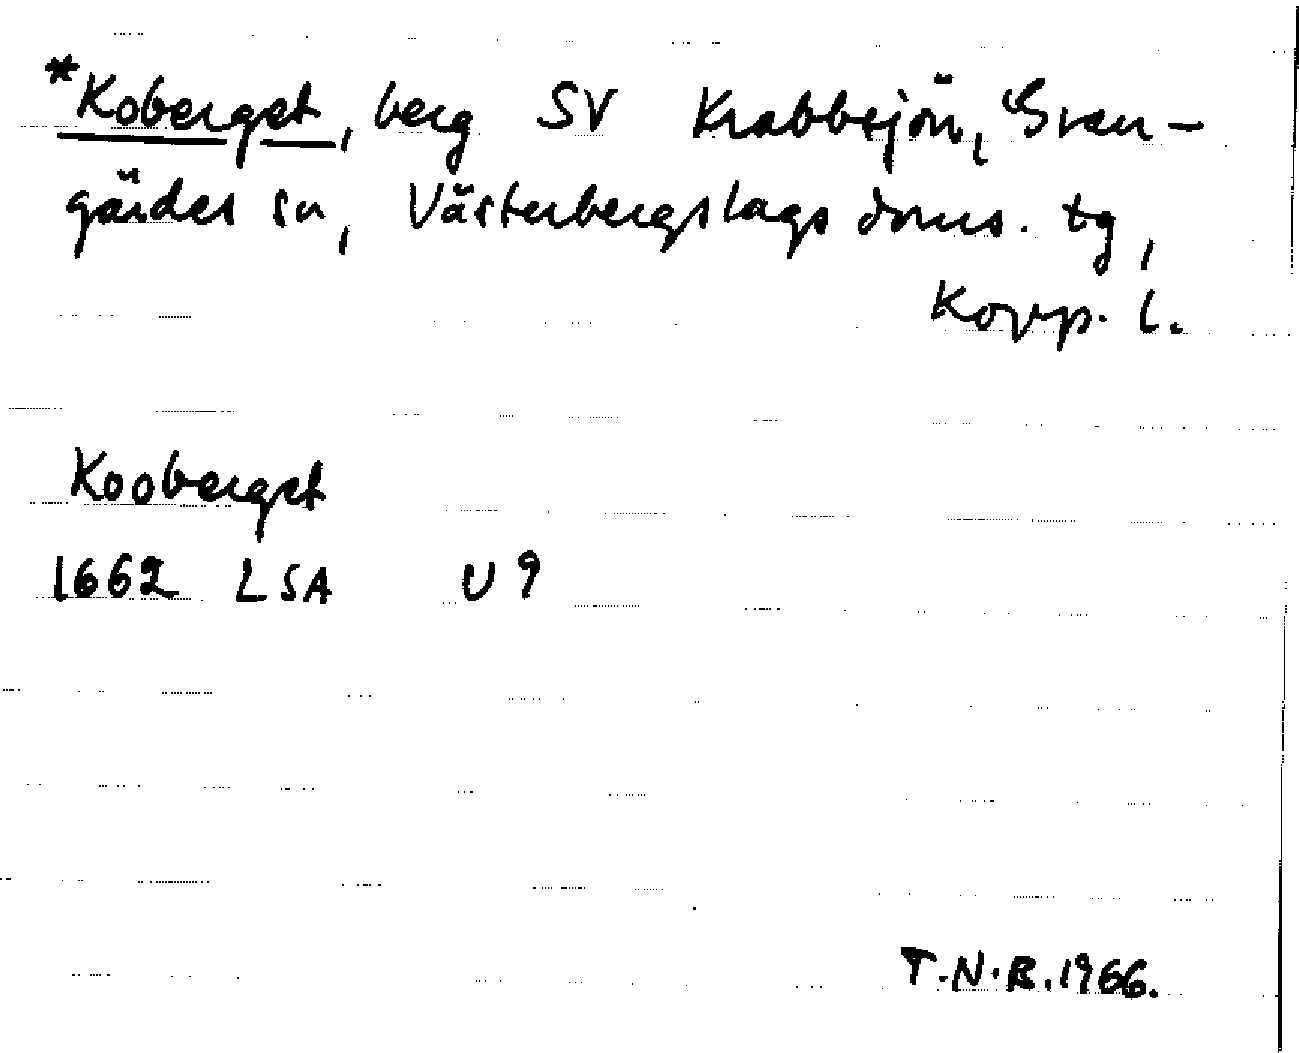 *Koberget, berg SV Krabbsjön, Gran-
gärdes sn, Västerbergslags doms. tg,
Kopp. l.
Kooberget
1662 LSA U 9
T.N.B. 1966.